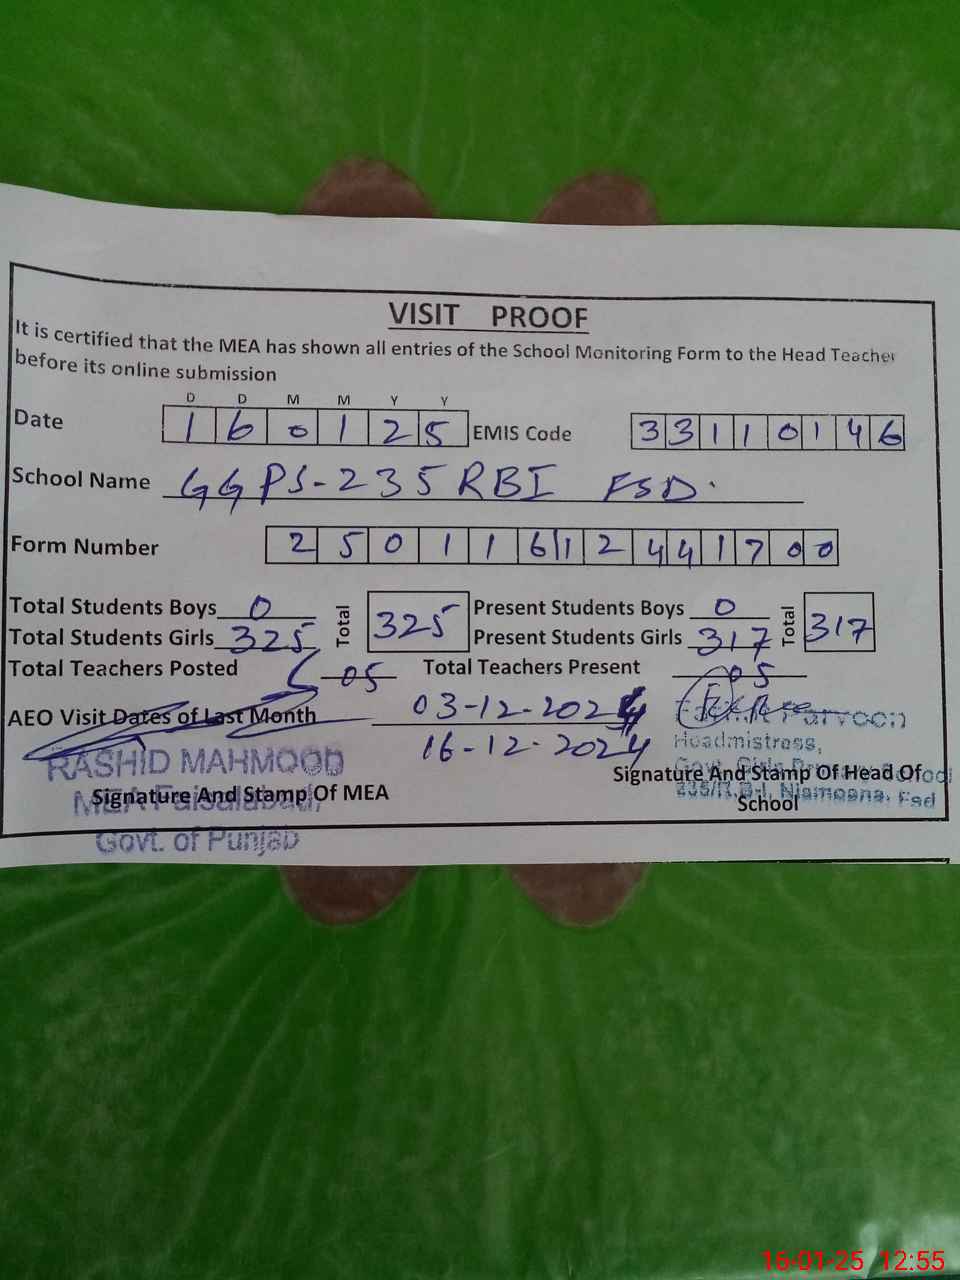 VISIT PROOF
It is certified that the MEA has shown all entries of the School Monitoring Form to the Head Teacher
before its online submission
D D M M Y Y
Date 1 6 0 1 2 5 EMIS Code 3 3 1 1 0 1 4 6
School Name GGPS-235 RBI FSD.
Form Number 2 5 0 1 1 6 1 2 4 4 1 7 0 0
Total Students Boys 0 Total 325 Present Students Boys 0 Total 317
Total Students Girls 325 Present Students Girls 317
Total Teachers Posted 05 Total Teachers Present 05
AEO Visit Dates of Last Month 03-12-2024
16-12-2024
Parveen
Headmistress,
Govt. Girls Primary School
235/R.B-I, Niamoana, Fsd
Signature And Stamp Of Head Of
School
RASHID MAHMOOD
MEA Faisalabad,
Govt. of Punjab
Signature And Stamp Of MEA
16-01-25 12:55